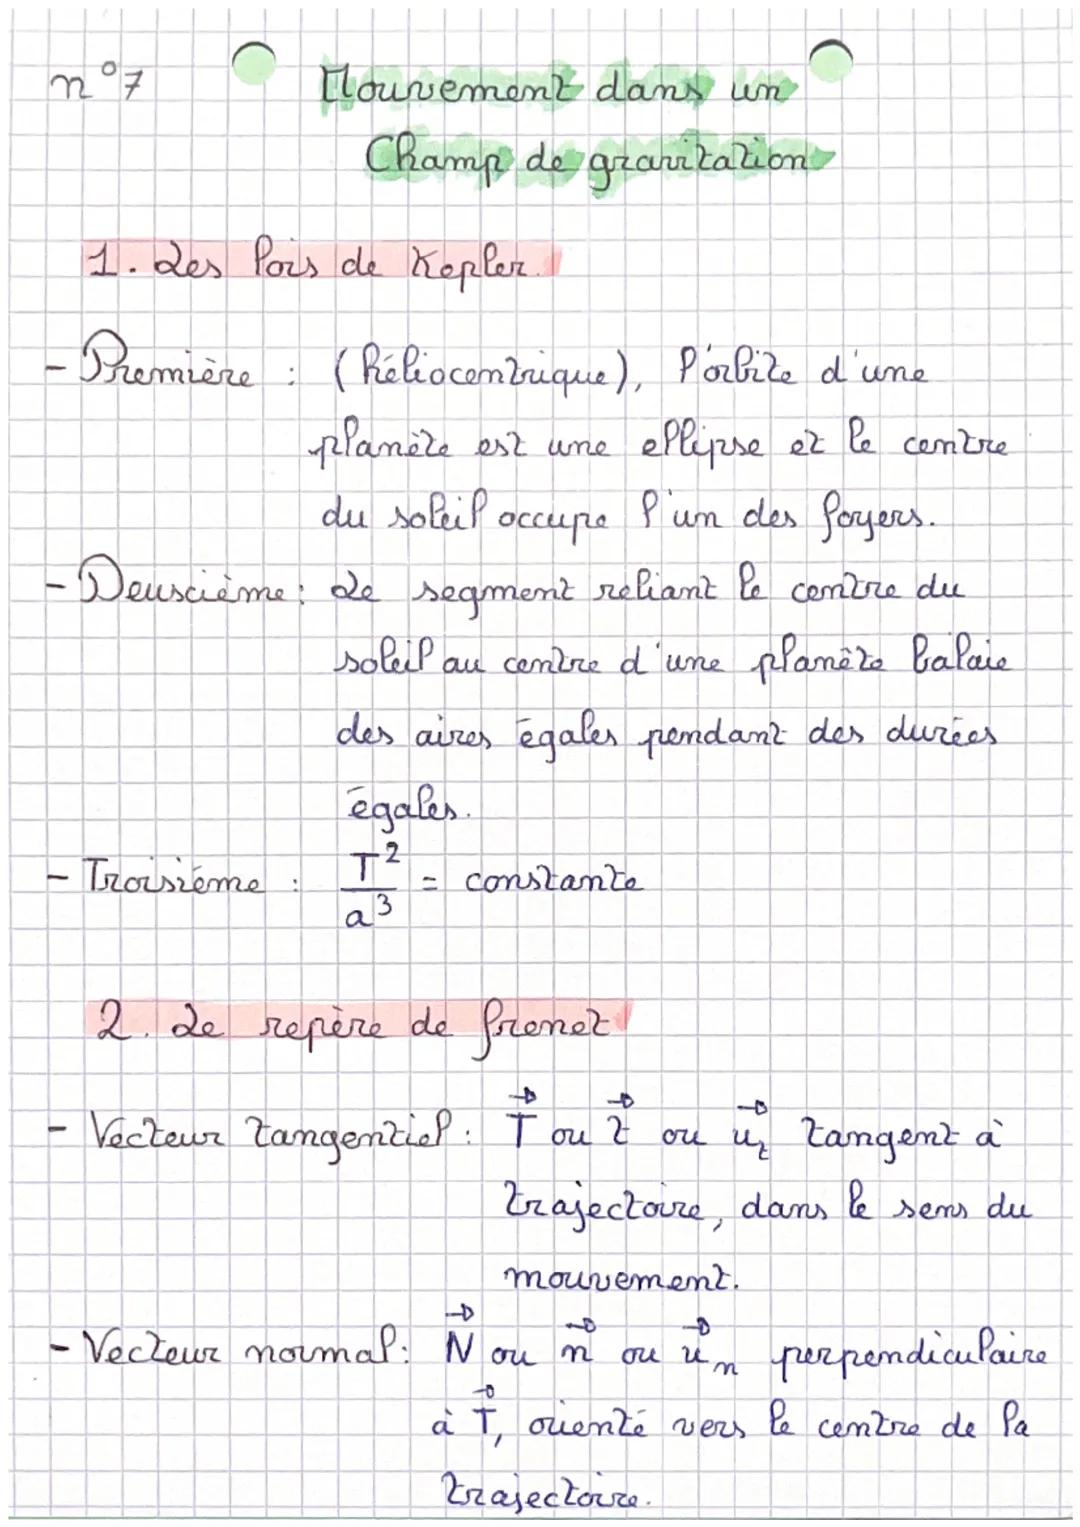 n°7
Mouvement dans un
Champ de gravitation
1. Les lois de Kepler.
- Première : (héliocentrique), l'orbite d'une
planète est une ellipse et le centre
du soleil occupe l'un des foyers.
- Deuxième : Le segment reliant le centre du
soleil au centre d'une planète balaie
des aires égales pendant des durées
égales.
- Troisième : T²/a³ = constante
2. Le repère de frenet
- Vecteur tangentiel : T⃗ ou t⃗ ou u⃗ₜ tangent à
trajectoire, dans le sens du
mouvement.
- Vecteur normal : N⃗ ou n⃗ ou u⃗ₙ perpendiculaire
à T⃗, orienté vers le centre de la
trajectoire.